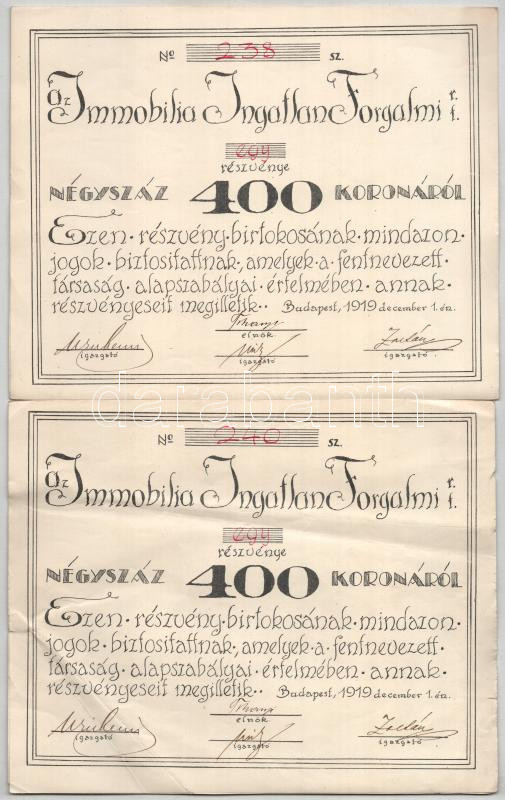 № 238 sz.
Az Immobilia Ingatlan Forgalmi r. t.
egy
részvénye
NÉGYSZÁZ 400 KORONÁRÓL
Ezen · részvény · birtokosának · mindazon ·
jogok · biztosittatnak ·, amelyek · a · fentnevezett ·
társaság · alapszabályai · értelmében · annak ·
részvényeseit megilletik · · Budapest, 1919 december 1. én.
elnök
igazgató igazgató Zoltán igazgató
darabanth
№ 240 sz.
Az Immobilia Ingatlan Forgalmi r. t.
egy
részvénye
NÉGYSZÁZ 400 KORONÁRÓL
Ezen · részvény · birtokosának · mindazon ·
jogok · biztosittatnak ·, amelyek · a · fentnevezett ·
társaság · alapszabályai · értelmében · annak ·
részvényeseit megilletik · · Budapest, 1919 december 1. én.
elnök
igazgató igazgató Zoltán igazgató